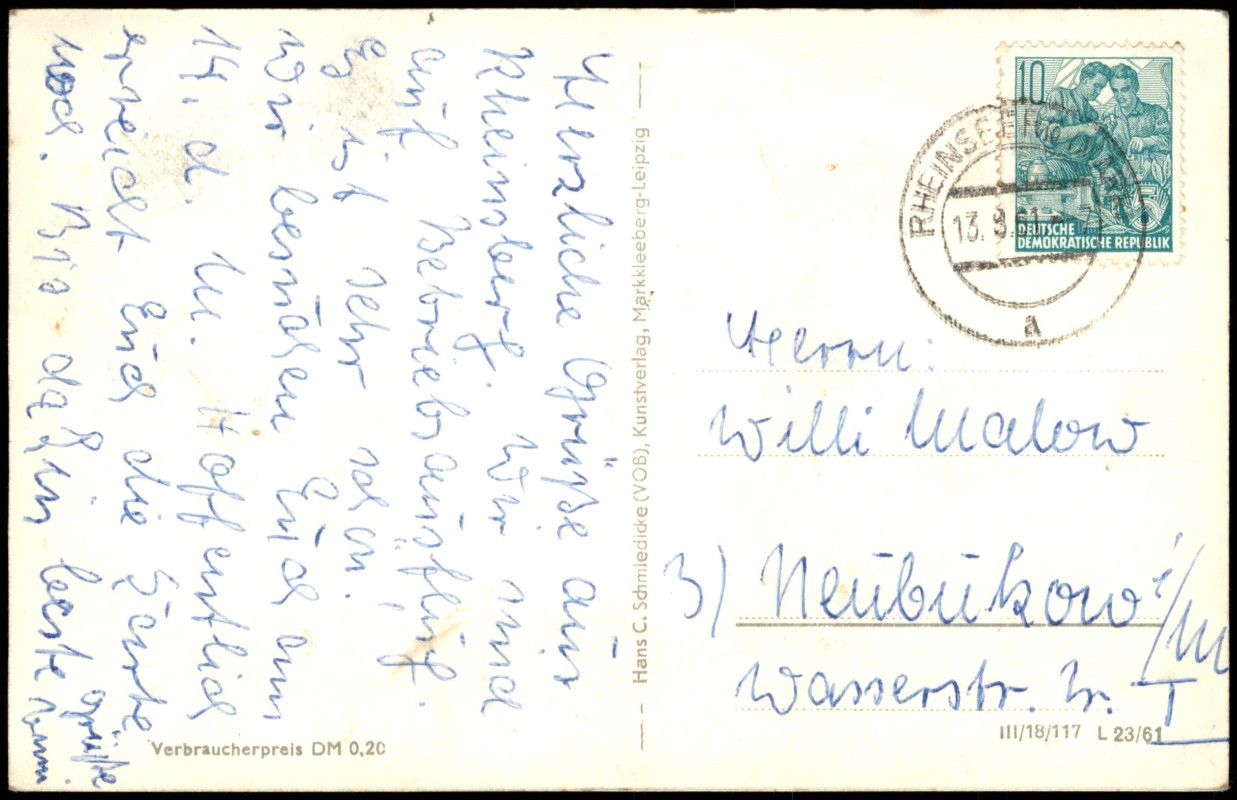 Herzliche Grüße aus
Rheinsberg. Wir sind
auf Betriebsausflug.
Es ist sehr schön!
Wir besuchen Euch am
14. d. M. Hoffentlich
erreicht Euch die Karte
noch. Bis dahin beste Grüße
Verbraucherpreis DM 0,20
Hans C. Schmiedicke (VOB), Kunstverlag, Markkleeberg-Leipzig
10
DEUTSCHE
DEMOKRATISCHE REPUBLIK
13. 8.61
a
Herrn:
Willi Malow
3) Neubukow i/M
Wasserstr. Nr.
III/18/117 L 23/61